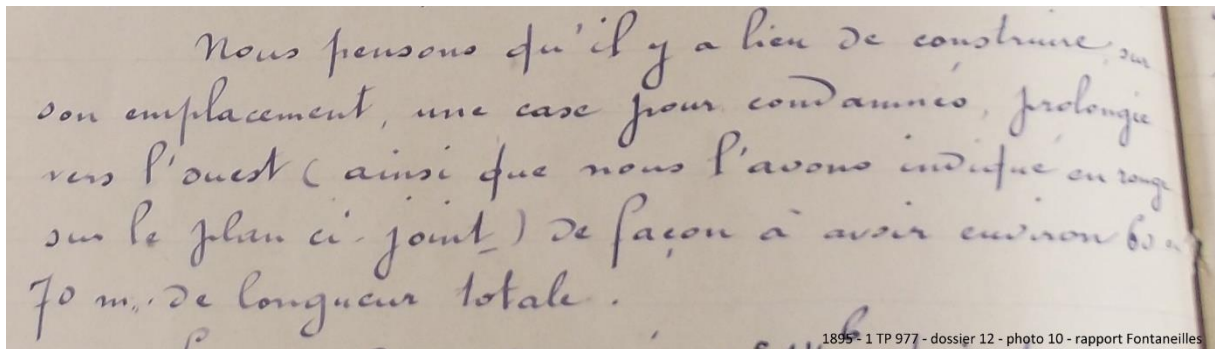 Nous pensons qu'il y a lieu de construire, sur
son emplacement, une case pour condamnés, prolongée
vers l'ouest (ainsi que nous l'avons indiqué en rouge
sur le plan ci-joint) de façon à avoir environ 60 ou
70 m. de longueur totale.
1895 - 1 TP 977 - dossier 12 - photo 10 - rapport Fontaneilles